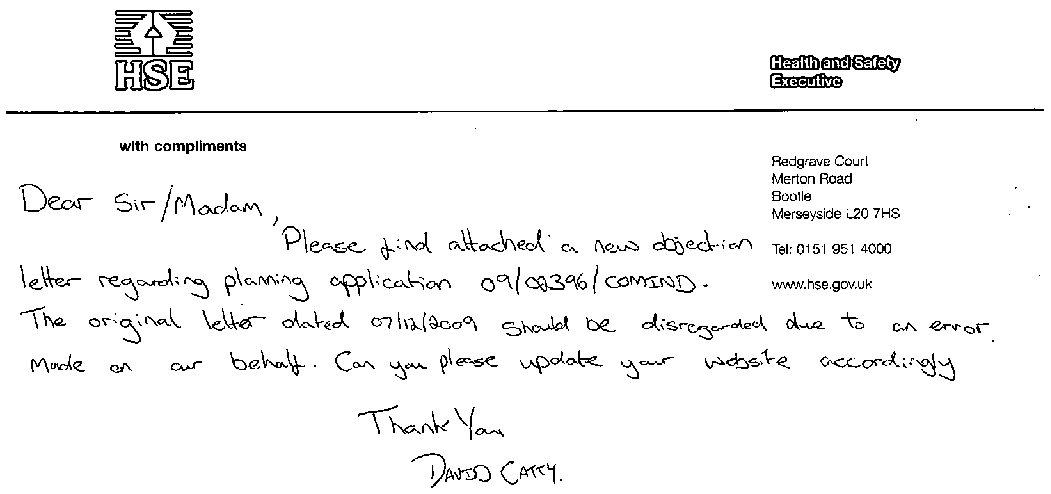 HSE
Health and Safety
Executive
with compliments
Redgrave Court
Merton Road
Bootle
Merseyside L20 7HS
Tel: 0151 951 4000
www.hse.gov.uk
Dear Sir/Madam,
Please find attached a new objection
letter regarding planning application 09/02396/COMIND.
The original letter dated 07/12/2009 should be disregarded due to an error
made on our behalf. Can you please update your website accordingly
Thank You
DAVID CATTY.